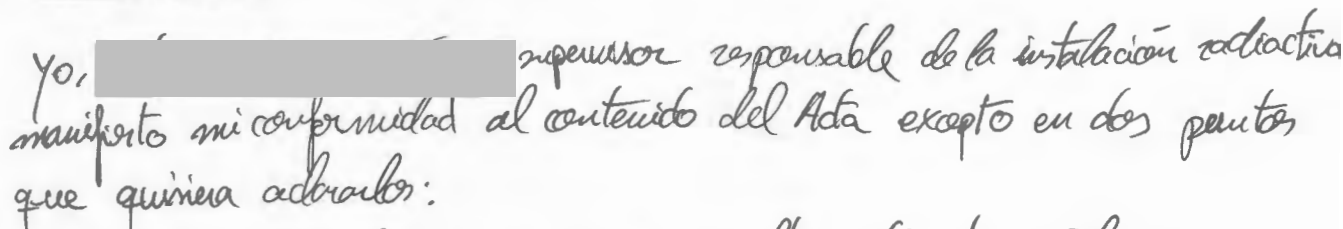 Yo, supervisor responsable de la instalación radiactiva
manifiesto mi conformidad al contenido del Acta excepto en dos puntos
que quisiera aclararlos: